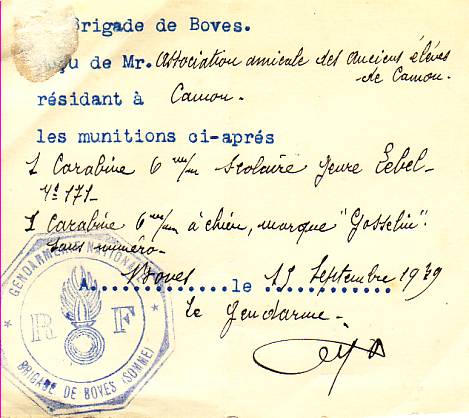 Brigade de Boves.
çu de Mr. Association amicale des anciens élèves
de Camon.
résidant à Camon.
les munitions ci-aprés
1 Carabine 6 m/m scolaire genre Lebel
N° 171.
1 Carabine 6 m/m à chien, marque "Gosselin".
sans numéro.
A Boves le 19 Septembre 1939
Le Gendarme.
GENDARMERIE NATIONALE
R F
BRIGADE DE BOVES (SOMME)